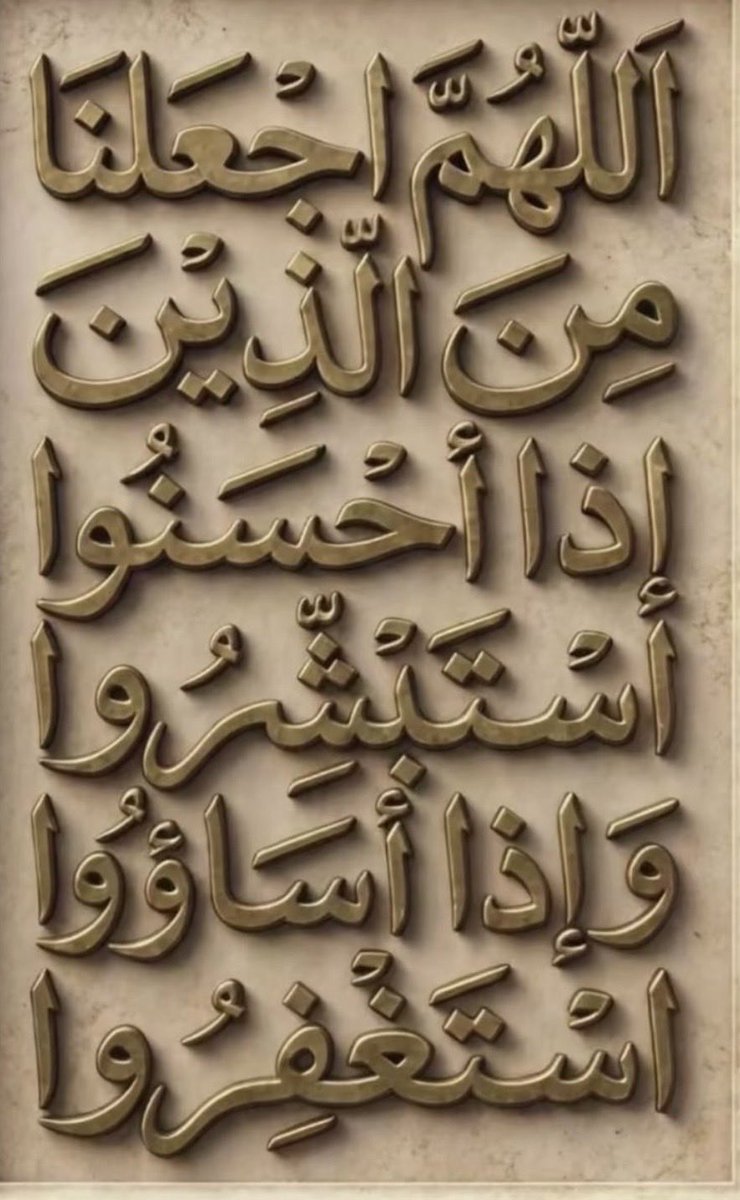 اَللّٰهُمَّ اجْعَلْنَا
مِنَ الَّذِيْنَ
إذا أحْسَنُوا
أسْتَبْشِّرُوا
وَإذا أسَاؤُوا
اسْتَغْفِرُوا